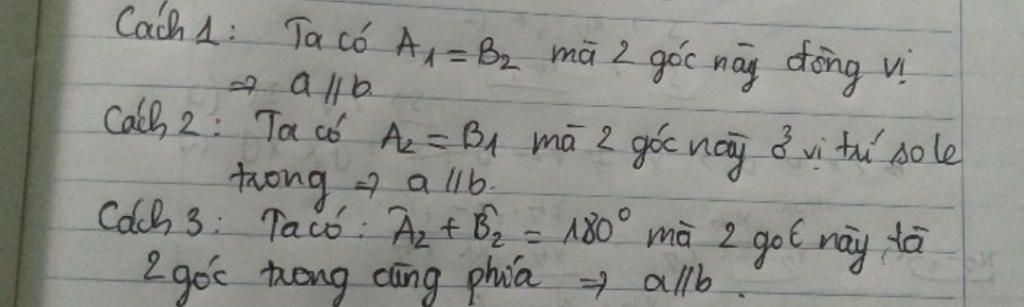 Cách 1: Ta có A₁ = B₂ mà 2 góc này đồng vị
⇒ a // b
Cách 2: Ta có A₂ = B₁ mà 2 góc này ở vị trí so le
trong ⇒ a // b.
Cách 3: Ta có: Â₂ + B̂₂ = 180° mà 2 goc này là
2 góc trong cùng phía ⇒ a // b.